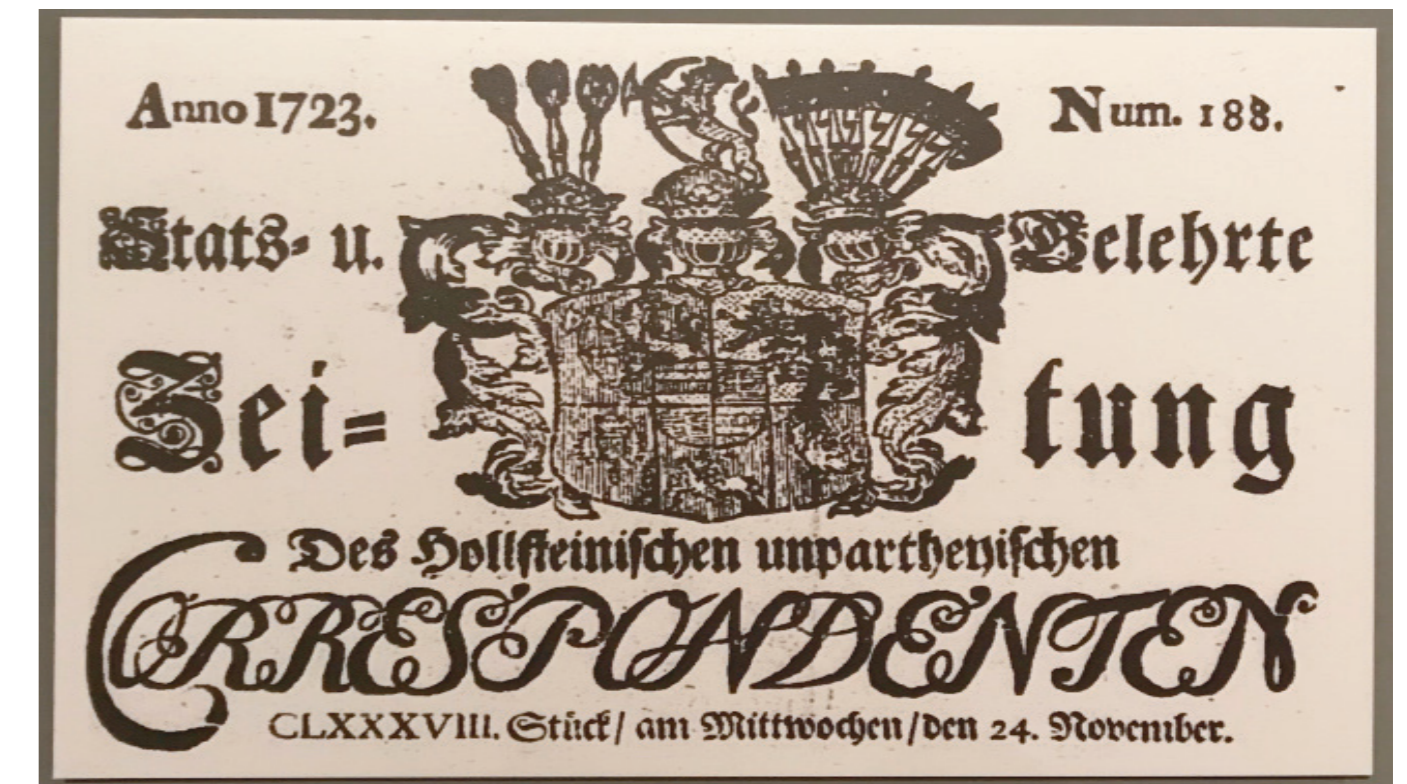 Anno 1723. Num. 188.
Stats- u. Gelehrte
Zei= tung
Des Hollsteinischen unpartheyischen
CORRESPONDENTEN
CLXXXVIII. Stück/ am Mittwochen/den 24. November.